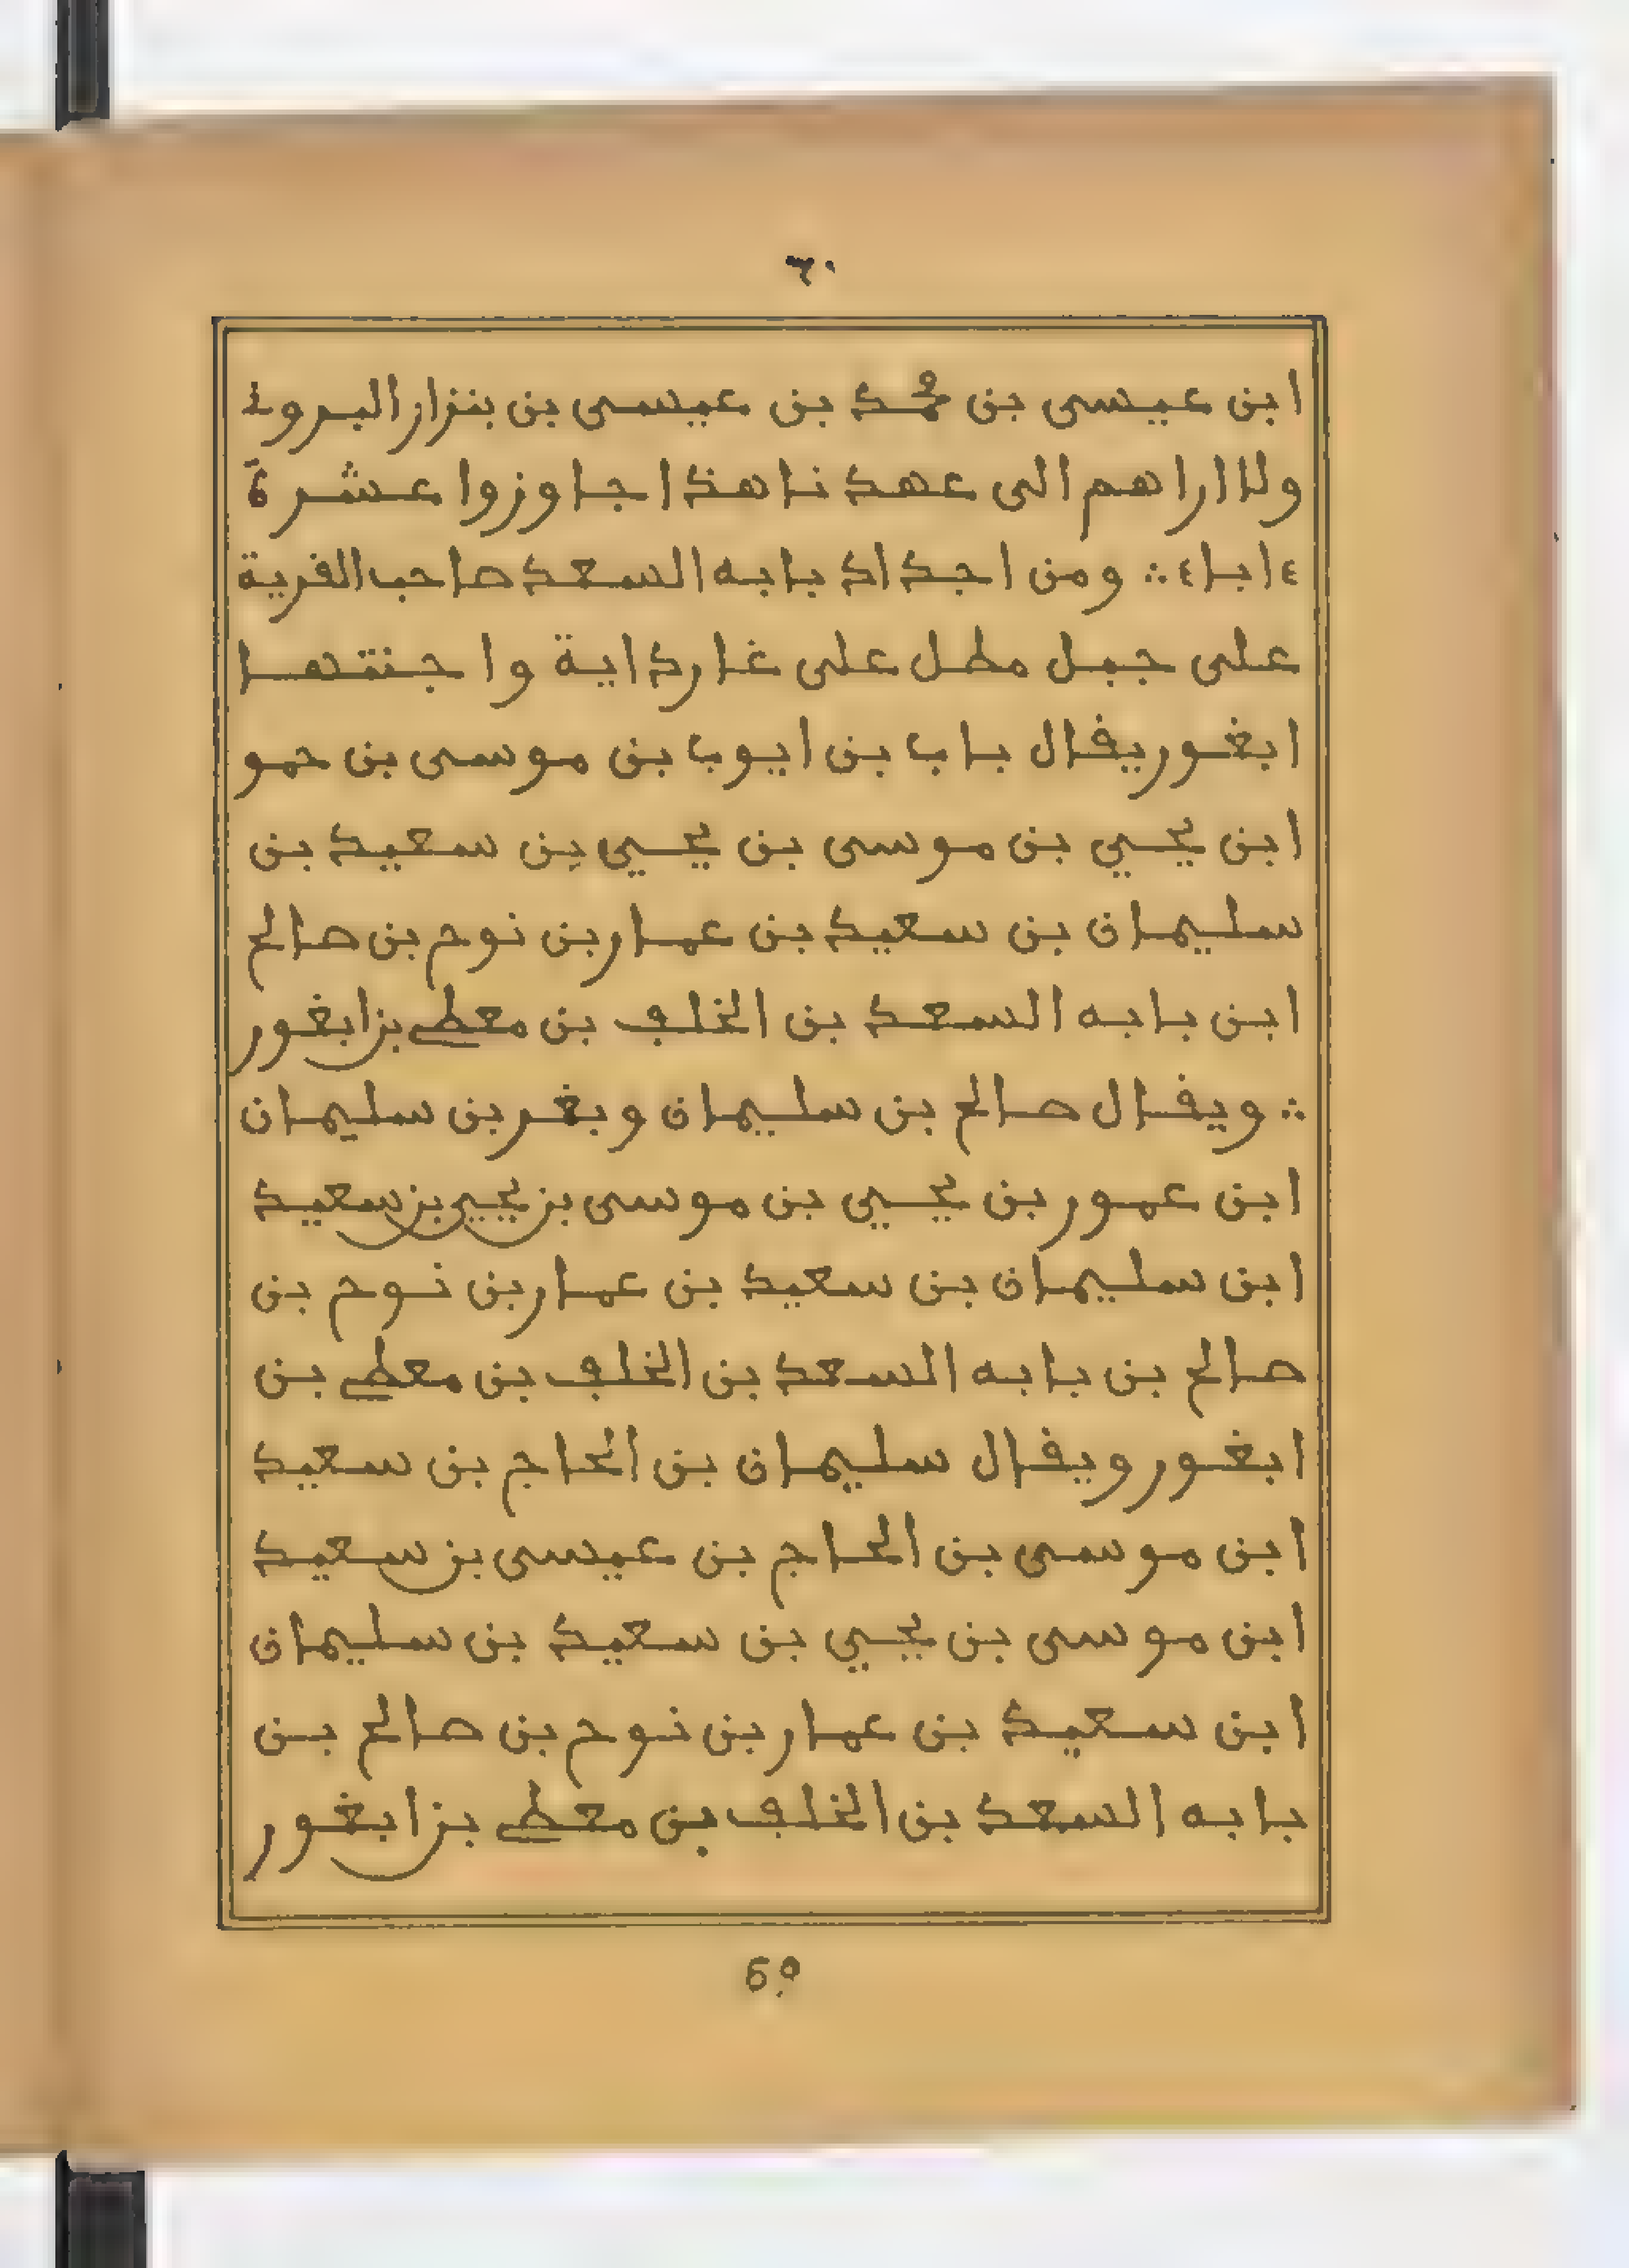 ٦٠
ابن عيسى بن محمد بن عيسى بن بنزار البروني
ولا اراهم الى عهدنا هذا جاوزوا عشرة
ءاباء ∴ ومن اجداد بابه السعد صاحب القرية
على جبل مطل على غارداية واجنتها
ابغور يقال باب بن ايوب بن موسى بن حمو
ابن يحيي بن موسى بن يحيي بن سعيد بن
سليمان بن سعيد بن عمار بن نوح بن صالح
ابن بابه السعد بن الخلف بن معطي بن ابغور
∴ ويقال صالح بن سليمان وبغر بن سليمان
ابن عمور بن يحيي بن موسى بن يحيي بن سعيد
ابن سليمان بن سعيد بن عمار بن نوح بن
صالح بن بابه السعد بن الخلف بن معطي بن
ابغور ويقال سليمان بن الحاج بن سعيد
ابن موسى بن الحاج بن عيسى بن سعيد
ابن موسى بن يحيي بن سعيد بن سليمان
ابن سعيد بن عمار بن نوح بن صالح بن
بابه السعد بن الخلف بن معطي بن ابغور